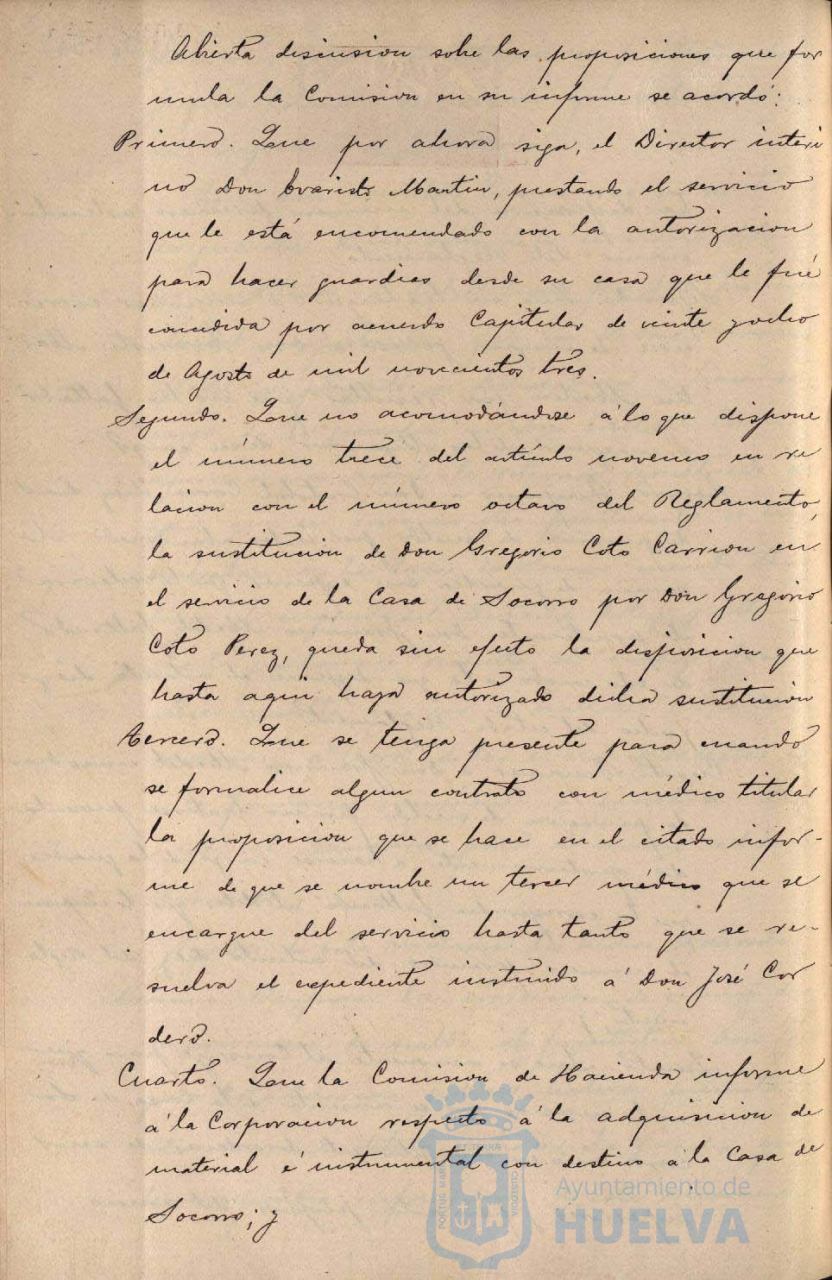 Abierta discusion sobre las proposiciones que for
mula la Comision en su informe se acordó:
Primero. Que por ahora siga, el Director interi
no Don Evaristo Martin, prestando el servicio
que le está encomendado con la autorizacion
para hacer guardias desde su casa que le fué
concedida por acuerdo Capitular de veinte y ocho
de Agosto de mil novecientos tres.
Segundo. Que no acomodándose á lo que dispone
el número trece del artículo noveno en re
lacion con el número octavo del Reglamento,
la sustitución de Don Gregorio Coto Carrion en
el servicio de la Casa de Socorro por Don Gregorio
Coto Perez, queda sin efecto la disposicion que
hasta aqui haya autorizado dicha sustitución
Tercero. Que se tenga presente para cuando
se formalice algun contrato con médico titular
la proposicion que se hace en el citado infor-
me de que se nombre un tercer médico que se
encargue del servicio hasta tanto que se re-
suelva el expediente instruido á Don José Cor
dero.
Cuarto. Que la Comision de Hacienda informe
á la Corporacion respecto á la adquisicion de
material é instrumental con destino á la Casa de
Socorro; y
Ayuntamiento de
HUELVA